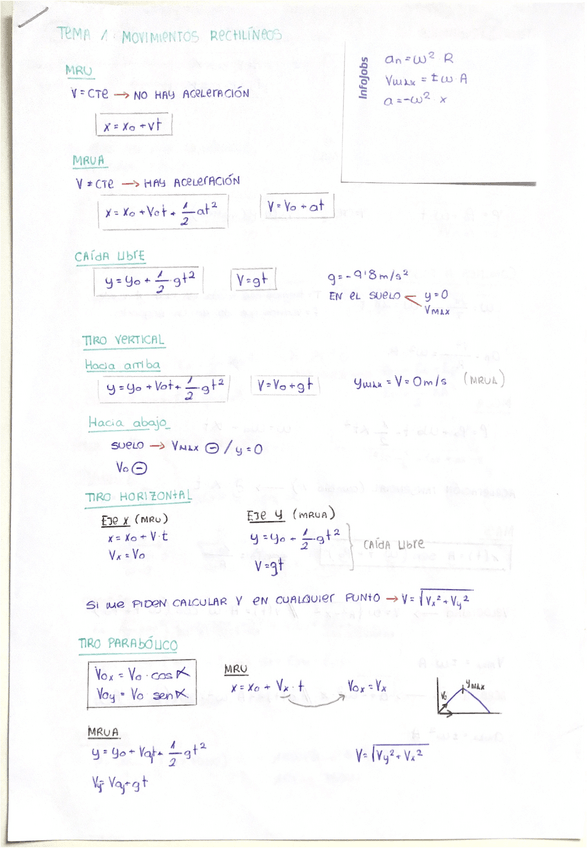 TEMA 1: MOVIMIENTOS RECTILÍNEOS
InfoJobs
an = ω² R
Vmáx = ± ω A
a = -ω² x
MRU
V = CTE → NO HAY ACELERACIÓN
x = x₀ + vt
MRUA
V ≠ CTE → HAY ACELERACIÓN
x = x₀ + V₀t + 1/2 at²
V = V₀ + at
CAÍDA LIBRE
y = y₀ + 1/2 gt²
V = gt
g = -9'8 m/s²
EN EL SUELO ← y = 0
VMÁX
TIRO VERTICAL
Hacia arriba
y = y₀ + V₀t + 1/2 gt²
V = V₀ + gt
ymáx = V = 0 m/s (MRUA)
Hacia abajo
SUELO → VMÁX ⊖ / y = 0
V₀ ⊖
TIRO HORIZONTAL
EJE X (MRU)
x = x₀ + V·t
Vx = V₀
EJE Y (MRUA)
y = y₀ + 1/2 gt²
V = gt
CAÍDA LIBRE
SI ME PIDEN CALCULAR V EN CUALQUIER PUNTO → V = √Vx² + Vy²
TIRO PARABÓLICO
V₀x = V₀ · cos α
V₀y = V₀ sen α
MRU
x = x₀ + Vx · t
V₀x = Vx
V₀
yMÁX
MRUA
y = y₀ + V₀yt + 1/2 gt²
Vy = V₀y + gt
V = √Vy² + Vx²